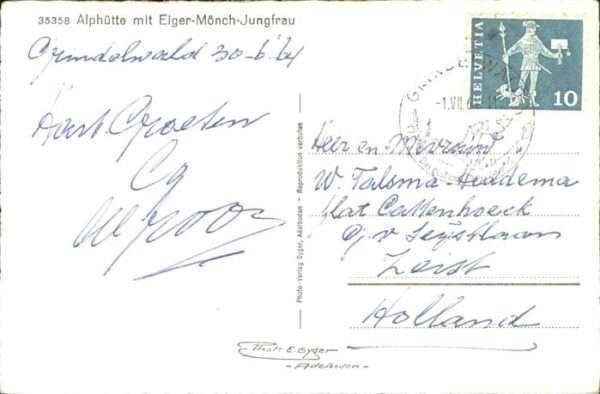 35358 Alphütte mit Eiger-Mönch-Jungfrau
Grindelwald 30-6-'64
Hart. Groeten
HELVETIA
10
GRINDELWALD
-1.VII.6
Heer en Mevrouw
W. Talsma-Heidema
flat Cattenhoeck
g/v Seystlaan
Zeist
Holland
Photo-Verlag Gyger, Adelboden - Reproduktion verboten
Phot: E. Gyger
- Adelboden -